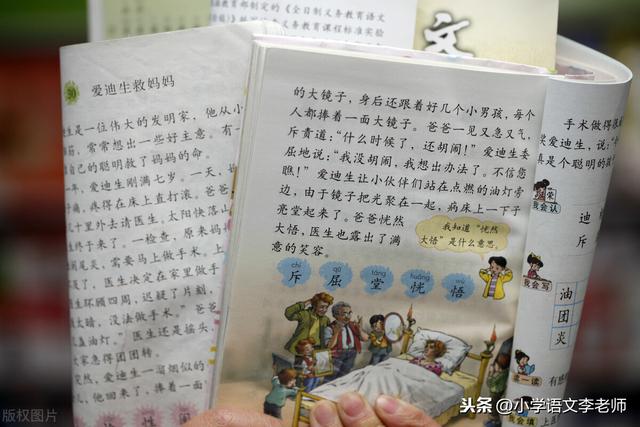 育部制定的《全日制义务教育语文
义务教育课程标准实验
文
30 爱迪生救妈妈
生是一位伟大的发明家，他从小
常常想出一些好主意。有一
自己的聪明救了妈妈的命。
年，爱迪生刚满七岁。一天，
痛，疼得在床上直打滚。爸爸
几十里外去请医生。太阳快落山
生终于来了。一检查，原来妈
阑尾炎，需要马上做手术。上
医生决定在家里做手
生环顾四周，迟疑了片刻
太暗，没法做手术。”爸爸
油灯。医生还是摇头
大家急得团团转。
突然，爱迪生一溜烟似的
他回来了，捧着一面
的大镜子，身后还跟着好几个小男孩，每个
人都捧着一面大镜子。爸爸一见又急又气，
斥责道：“什么时候了，还胡闹！”爱迪生委
屈地说：“我没胡闹，我想出办法了。不信您
瞧！”爱迪生让小伙伴们站在点燃的油灯旁
边，由于镜子把光聚在一起，病床上一下子
亮堂起来了。爸爸恍然
大悟，医生也露出了满
意的笑容。
我知道“恍然
大悟”是什么意思。
chì qū táng huǎng wù
斥 屈 堂 恍 悟
手术做得很
爱迪生，说：“
真是个聪明的孩
我会认
迪
斥
我会写
油
团
炎
读一读
我会填
版权图片
头条 @小学语文李老师